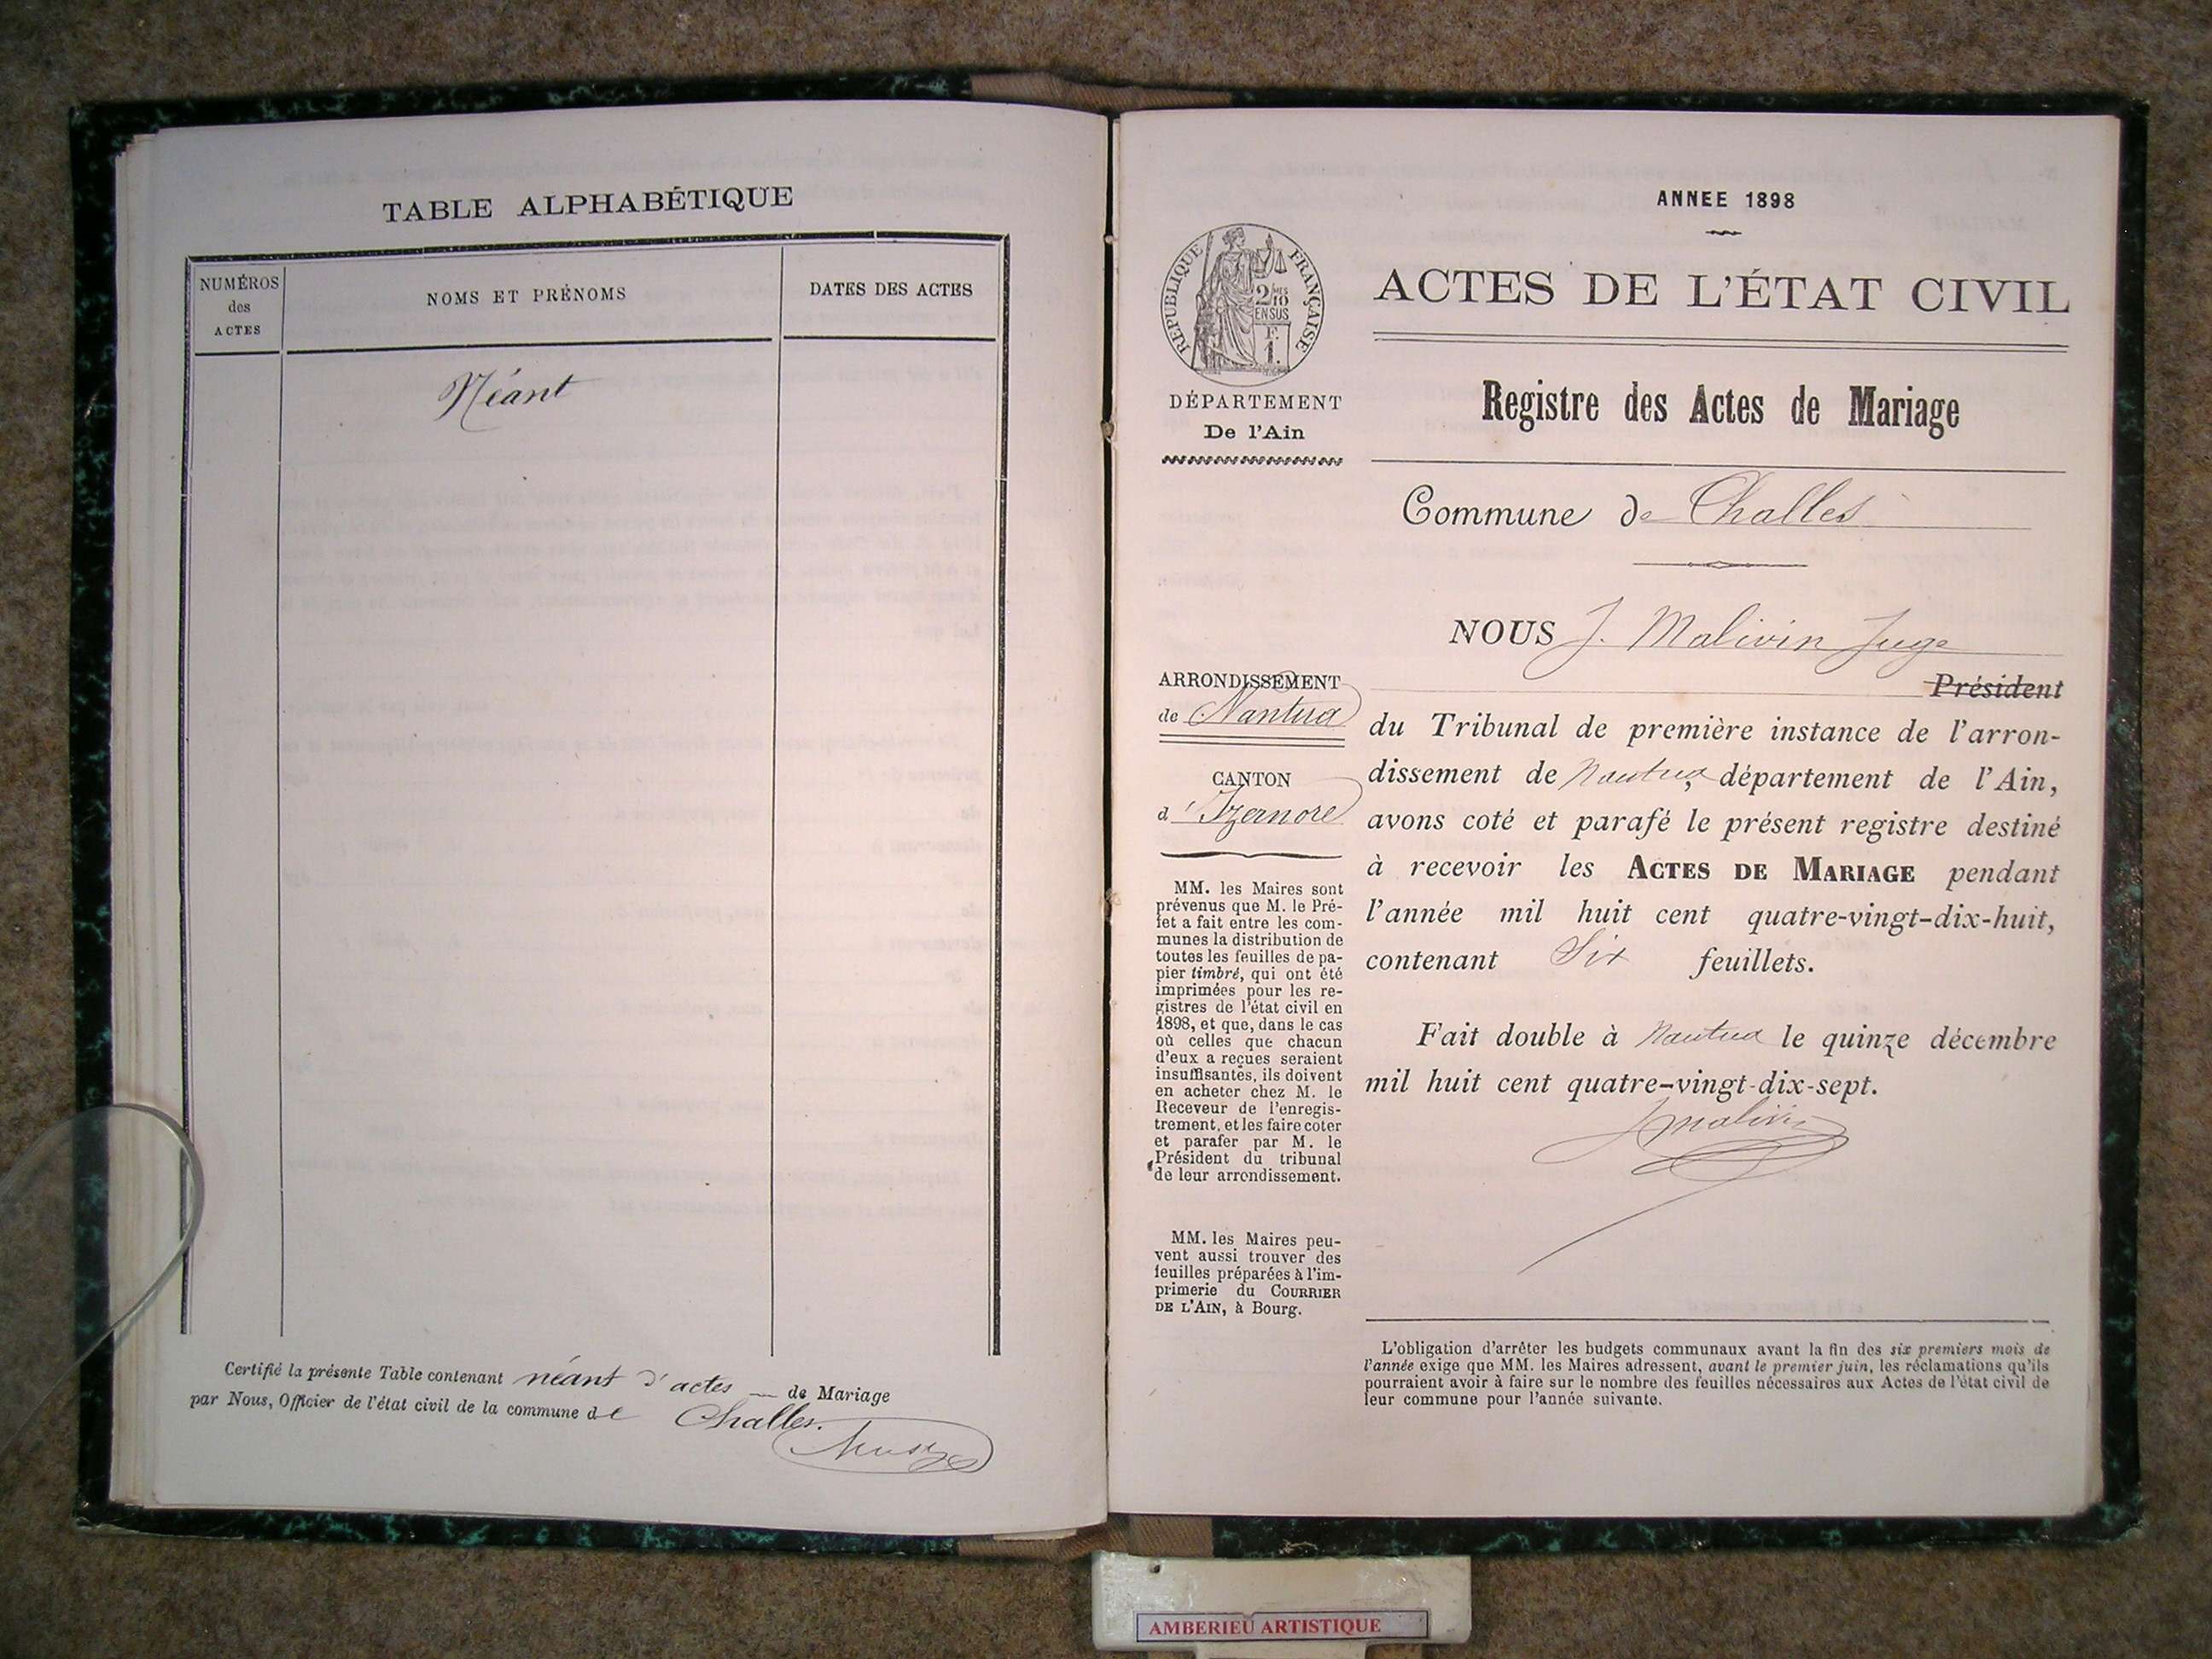 TABLE ALPHABÉTIQUE
NUMÉROS
des
ACTES
NOMS ET PRÉNOMS
DATES DES ACTES
Néant
Certifié la présente Table contenant néant d'actes — de Mariage
par Nous, Officier de l'état civil de la commune de Challes.
ANNEE 1898
RÉPUBLIQUE FRANÇAISE
2/10 MES
EN SUS
F.
1.
ACTES DE L'ÉTAT CIVIL
DÉPARTEMENT
De l'Ain
Registre des Actes de Mariage
Commune de Challes
NOUS J. Malivin Juge
Président
ARRONDISSEMENT
de Nantua
CANTON
d'Izernore
MM. les Maires sont
prévenus que M. le Pré-
fet a fait entre les com-
munes la distribution de
toutes les feuilles de pa-
pier timbré, qui ont été
imprimées pour les re-
gistres de l'état civil en
1898, et que, dans le cas
où celles que chacun
d'eux a reçues seraient
insuffisantes, ils doivent
en acheter chez M. le
Receveur de l'enregis-
trement, et les faire coter
et parafer par M. le
Président du tribunal
de leur arrondissement.
MM. les Maires peu-
vent aussi trouver des
feuilles préparées à l'im-
primerie du COURRIER
DE L'AIN, à Bourg.
du Tribunal de première instance de l'arron-
dissement de Nantua, département de l'Ain,
avons coté et parafé le présent registre destiné
à recevoir les ACTES DE MARIAGE pendant
l'année mil huit cent quatre-vingt-dix-huit,
contenant Six feuillets.
Fait double à Nantua le quinze décembre
mil huit cent quatre-vingt-dix-sept.
JMalivin
L'obligation d'arrêter les budgets communaux avant la fin des six premiers mois de
l'année exige que MM. les Maires adressent, avant le premier juin, les réclamations qu'ils
pourraient avoir à faire sur le nombre des feuilles nécessaires aux Actes de l'état civil de
leur commune pour l'année suivante.
AMBERIEU ARTISTIQUE